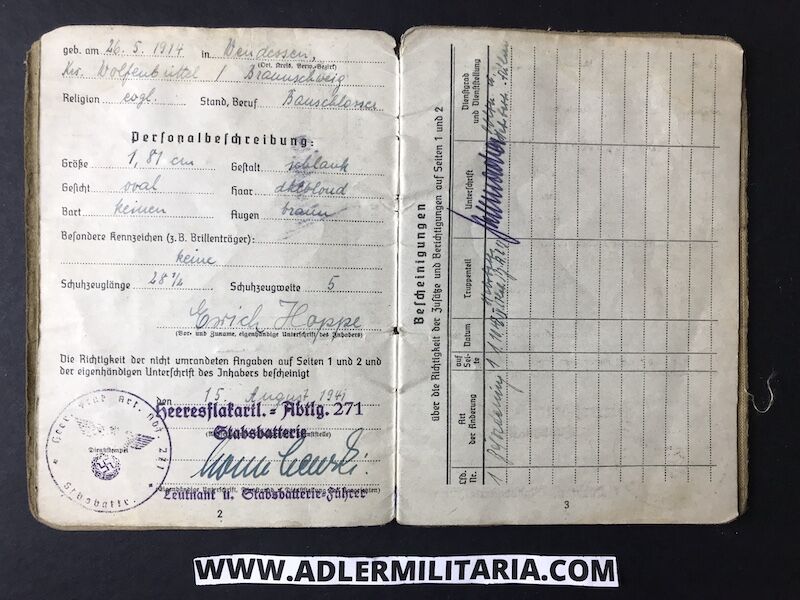 geb. am 26. 5. 1914 in Wendessen,
(Ort, Kreis, Verw.-Bezirk)
Krs. Wolfenbüttel / Braunschweig
Religion evgl. Stand, Beruf Bauschlosser
Personalbeschreibung:
Größe 1,81 cm Gestalt schlank
Gesicht oval Haar dklblond
Bart keinen Augen braun
Besondere Kennzeichen (z.B. Brillenträger):
keine
Schuhzeuglänge 28 1/2 Schuhzeugweite 5
Erich Hoppe
(Vor- und Zuname, eigenhändige Unterschrift des Inhabers)
Die Richtigkeit der nicht umrandeten Angaben auf Seiten 1 und 2 und
der eigenhändigen Unterschrift des Inhabers bescheinigt
den 15. August 1941
Heeresflakartl. - Abtlg. 271
Stabsbatterie
Dienststempel
271
Stabsbattr.
Leutnant u. Stabsbatterie-Führer
2
Bescheinigungen
über die Richtigkeit der Zusätze und Berichtigungen auf Seiten 1 und 2
Lfd. Nr.
Art der Änderung
auf Seite
Datum
Truppenteil
Unterschrift
Dienstgrad und Dienststellung
1
3
WWW.ADLERMILITARIA.COM